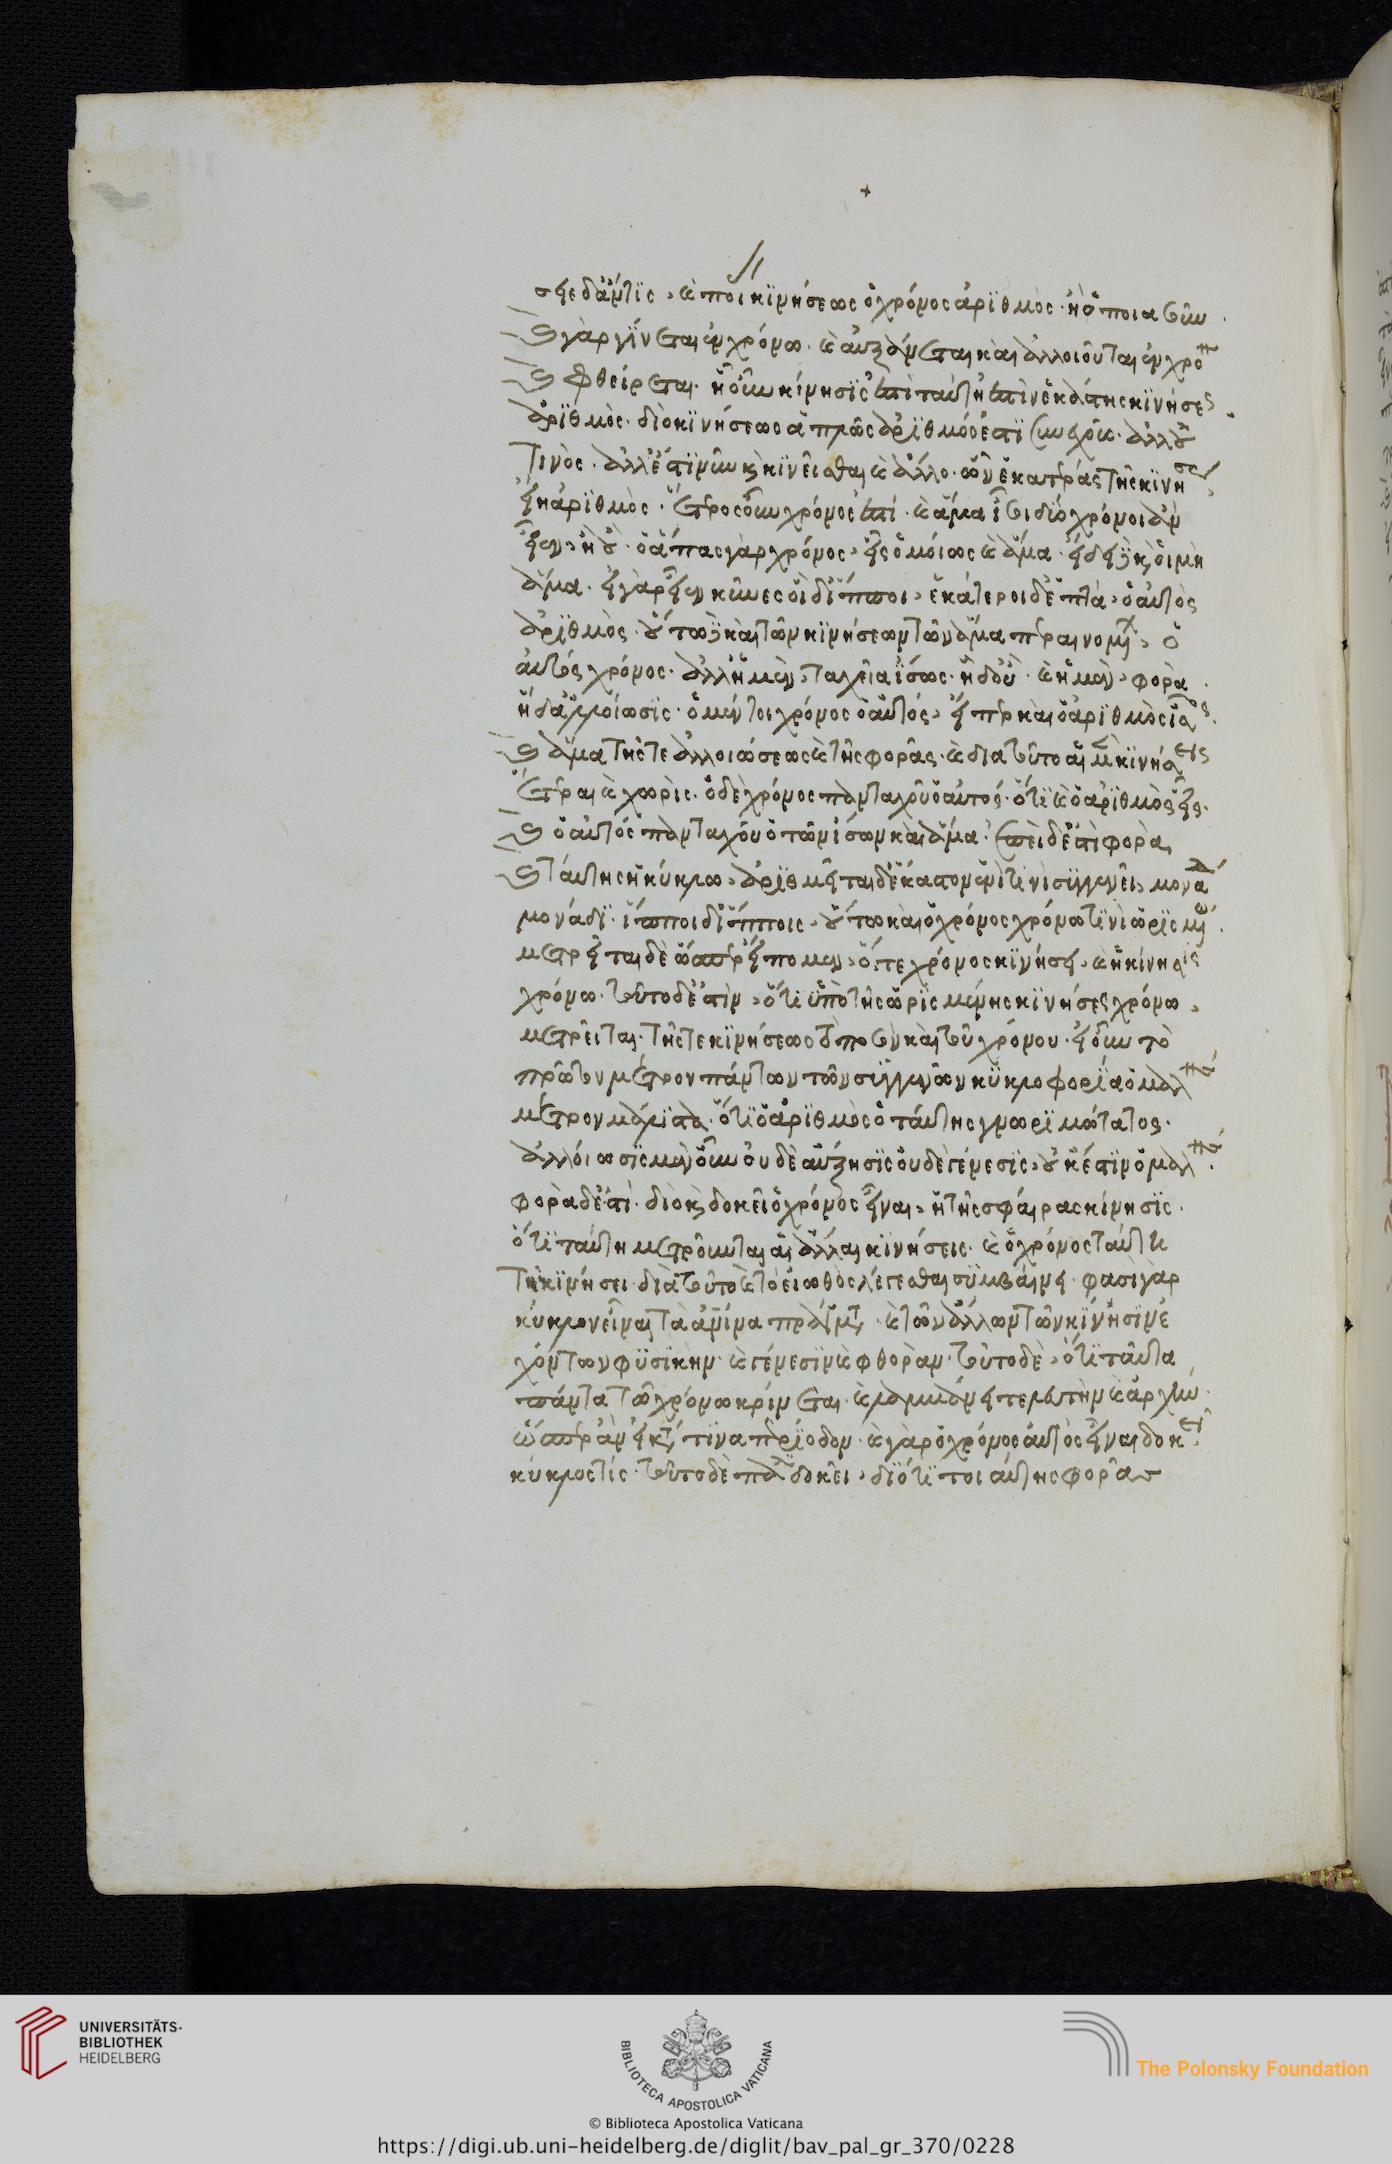 σειε δ' ἄν τις, καὶ ποι κινήσεως ὁ χρόνος ἀριθμὸς· ἢ ὁποιασοῦν·
καὶ γὰρ γίνεται ἐν χρόνω· καὶ αὐξάνεται καὶ ἀλλοιοῦται ἐν χρό
καὶ φθείρεται· ἧ οὖν κίνησίς ἐστι ταύτη ἐστὶν ἑκάστης κινήσεως
ἀριθμὸς· διὸ κινήσεως ἁπλῶς ἀριθμός ἐστι συνεχοῦς· ἀλλ' οὔ
τινὸς· ἀλλ' ἔστι νῦν καὶ κινεῖσθαι καὶ ἄλλο· ὧν ἑκατέρας τῆς κινήσεως
εἴη ἀριθμὸς· ἕτερος οὖν χρόνος ἐστί· καὶ ἅμα ἴσοι δύο χρόνοι ἂν
εἶεν, ἢ οὔ· ὁ ἅπας γὰρ χρόνος, εἷς ὁμοίως καὶ ἅμα· εἴδει δὲ καὶ οἱ μὴ
ἅμα· εἰ γὰρ εἶεν κύνες οἱ δ' ἵπποι, ἑκάτεροι δ' ἑπτά, ὁ αὐτὸς
ἀριθμὸς· οὕτω δὲ καὶ τῶν κινήσεων τῶν ἅμα περαινομένων, ὁ
αὐτός χρόνος· ἀλλ' ἡ μὲν, ταχεῖα ἴσως· ἡ δ' οὔ· καὶ ἡ μὲν, φορὰ·
ἡ δ' ἀλλοίωσις· ὁ μέντοι χρόνος ὁ αὐτός, εἴπερ καὶ ὁ ἀριθμὸς ἴσος·
καὶ ἅμα τῆς τε ἀλλοιώσεως καὶ τῆς φορᾶς· καὶ διατοῦτο αἱ μὲν κινήσεις
ἕτεραι καὶ χωρὶς· ὁ δὲ χρόνος πανταχοῦ ὁ αὐτός· ὅτι καὶ ὁ ἀριθμὸς εἷς·
καὶ ὁ αὐτός πανταχοῦ ὁ τῶν ἴσων καὶ ἅμα· ἐπεὶ δέ ἐστι φορὰ,
καὶ ταύτης ἡ κύκλω, ἀριθμεῖται δ' ἕκαστον ἑνὶ τινὶ συγγενεῖ, μονάδες
μονάδι· ἵπποι δ' ἵπποις, οὕτω καὶ ὁ χρόνος χρόνω τινὶ ὡρισμένω·
μετρεῖται δὲ ὥσπερ εἴπομεν, ὅ τε χρόνος κινήσει, καὶ ἡ κίνησις
χρόνω· τοῦτο δέ ἐστιν, ὅτι ὑπὸ τῆς ὡρισμένης κινήσεως χρόνω,
μετρεῖται· τῆς τε κινήσεως τὸ ποσὸν καὶ τοῦ χρόνου· εἰ οὖν τὸ
πρῶτον μέτρον πάντων τῶν συγγενῶν κυκλοφορία ὁμαλὴς
μέτρον μάλιστα· ὅτι ὁ ἀριθμὸς ὁ ταύτης γνωριμώτατος·
ἀλλοίωσις μὲν οὖν οὐδὲ αὔξησις οὐδὲ γένεσις, οὐκ ἔστιν ὁμαλὴς·
φορὰ δέ ἐστι· διὸ καὶ δοκεῖ ὁ χρόνος εἶναι, ἡ τῆς σφαίρας κίνησις·
ὅτι ταύτη μετροῦνται αἱ ἄλλαι κινήσεις· καὶ ὁ χρόνος ταύτη
τῆ κινήσει· διὰ τοῦτο καὶ τὸ εἰωθὸς λέγεσθαι συμβαίνει· φασὶ γὰρ
κύκλον εἶναι τὰ ἀνθρώπινα πράγματα, καὶ τῶν ἄλλων τῶν κίνησιν ἐ
χόντων φυσικὴν· καὶ γένεσιν καὶ φθοράν· τοῦτο δὲ, ὅτι ταῦτα
πάντα τῶ χρόνω κρίνεται· καὶ λαμβάνει τελευτὴν καὶ ἀρχὴν·
ὥσπερ ἂν εἰ κατά τινα περίοδον· καὶ γὰρ ὁ χρόνος αὐτὸς εἶναι δοκεῖ
κύκλος τίς· τοῦτο δὲ πάλιν δοκεῖ, διότι τοιαύτης φορᾶς
© Biblioteca Apostolica Vaticana
https://digi.ub.uni-heidelberg.de/diglit/bav_pal_gr_370/0228
UNIVERSITÄTS-
BIBLIOTHEK
HEIDELBERG
BIBLIOTECA APOSTOLICA VATICANA
The Polonsky Foundation